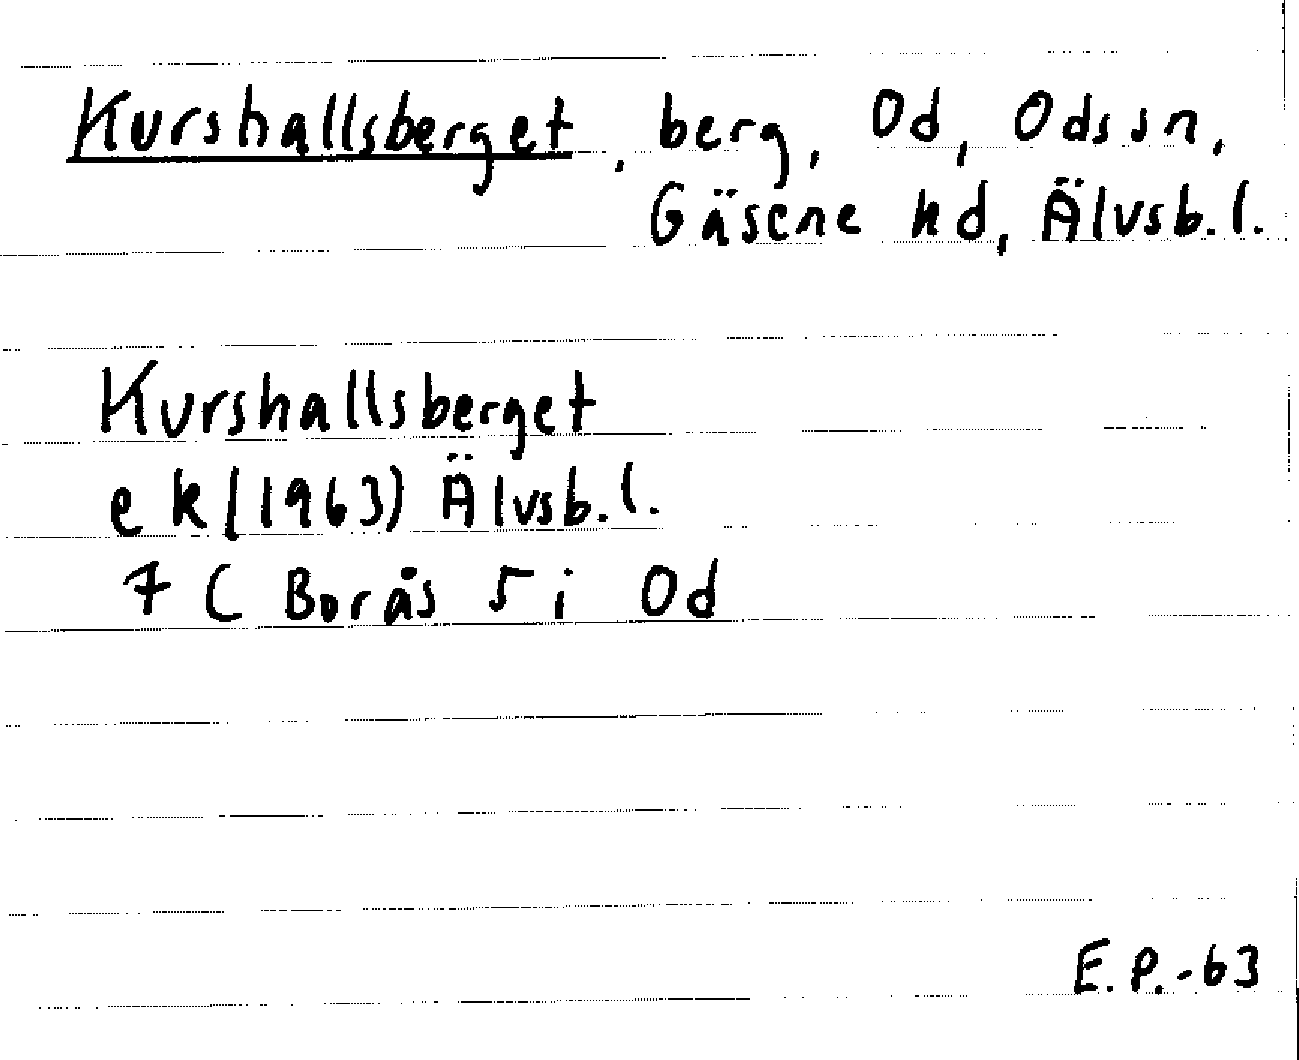 Kurshallsberget, berg, Od, Ods sn,
Gäsene hd, Älvsb. l.
Kurshallsberget
e k (1963) Älvsb. l.
7 C Borås 5 i Od
E. P. -63